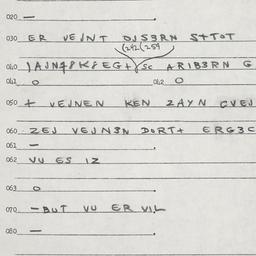 020 —
030 ER VEJNT DJS3RN S++OT
(242(259
040 SC ARIB3RN G
041 O 042 O
050 + VEJNEN KEN ZAYN GVEJ
060 ZEJ VEJN3N DORT+ ERG3C
061 —
062 VU ES IZ
063 O
070 —BUT VU ER VIL
080 —